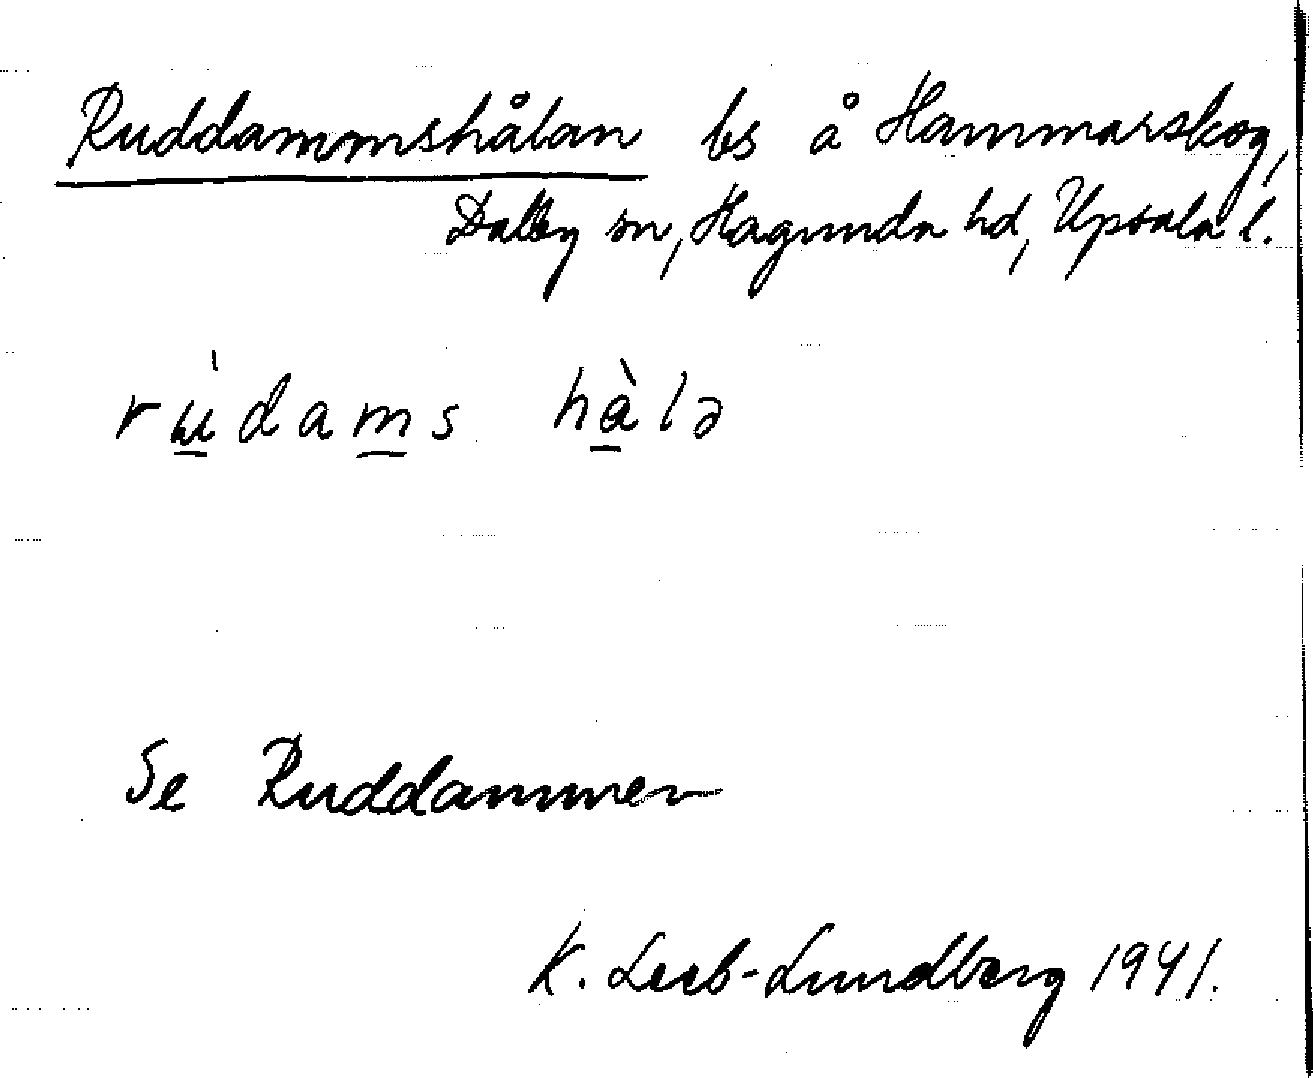 Ruddammshålan bs å Hammarskog,
Dalby sn, Hagunda hd, Upsala l.
rùdams hàlə
Se Ruddammen
K. Leeb-Lundberg 1941.